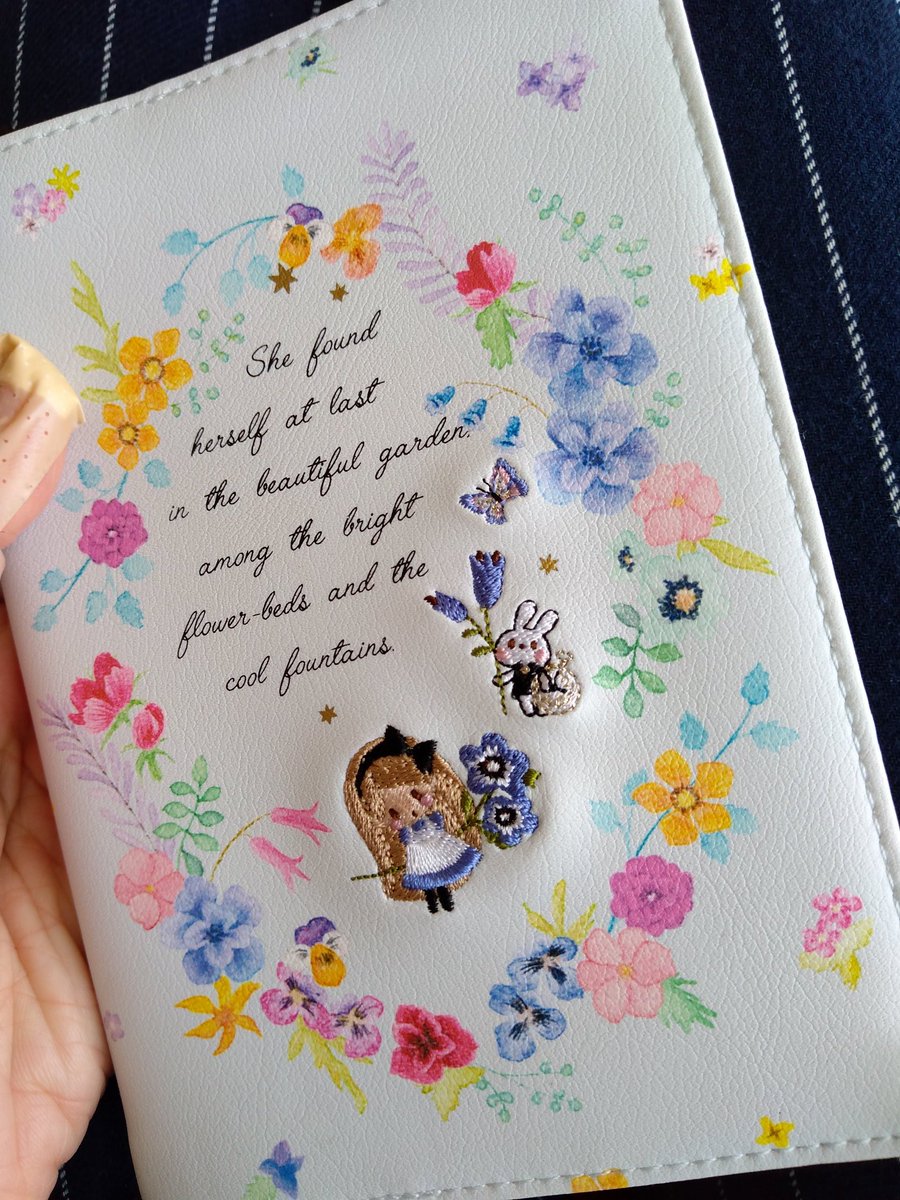 She found
herself at last
in the beautiful garden.
among the bright
flower-beds and the
cool fountains.